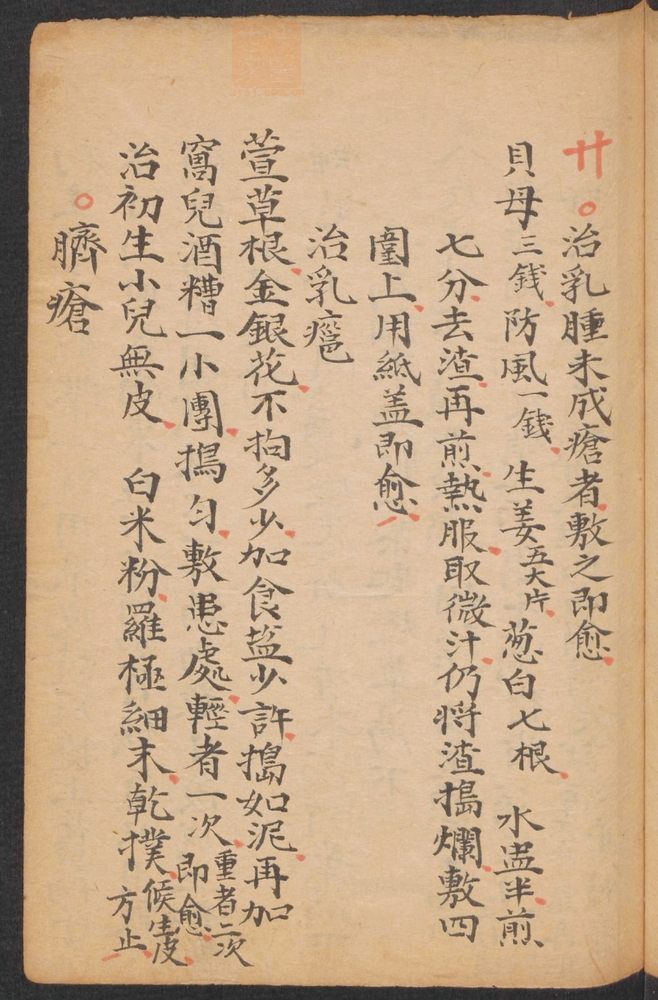 廿○治乳腫未成瘡者敷之即愈
貝母三錢防風一錢生姜五大片葱白七根 水盅半煎
七分去渣再煎熱服取微汁仍将渣搗爛敷四
圍上用紙盖即愈
治乳癰
萱草根金銀花不拘多少加食盐少許搗如泥再加
窩兒酒糟一小團搗匀敷患處輕者一次即愈重者二次
治初生小兒無皮 白米粉羅極細末乾撲候生皮方止
○臍瘡